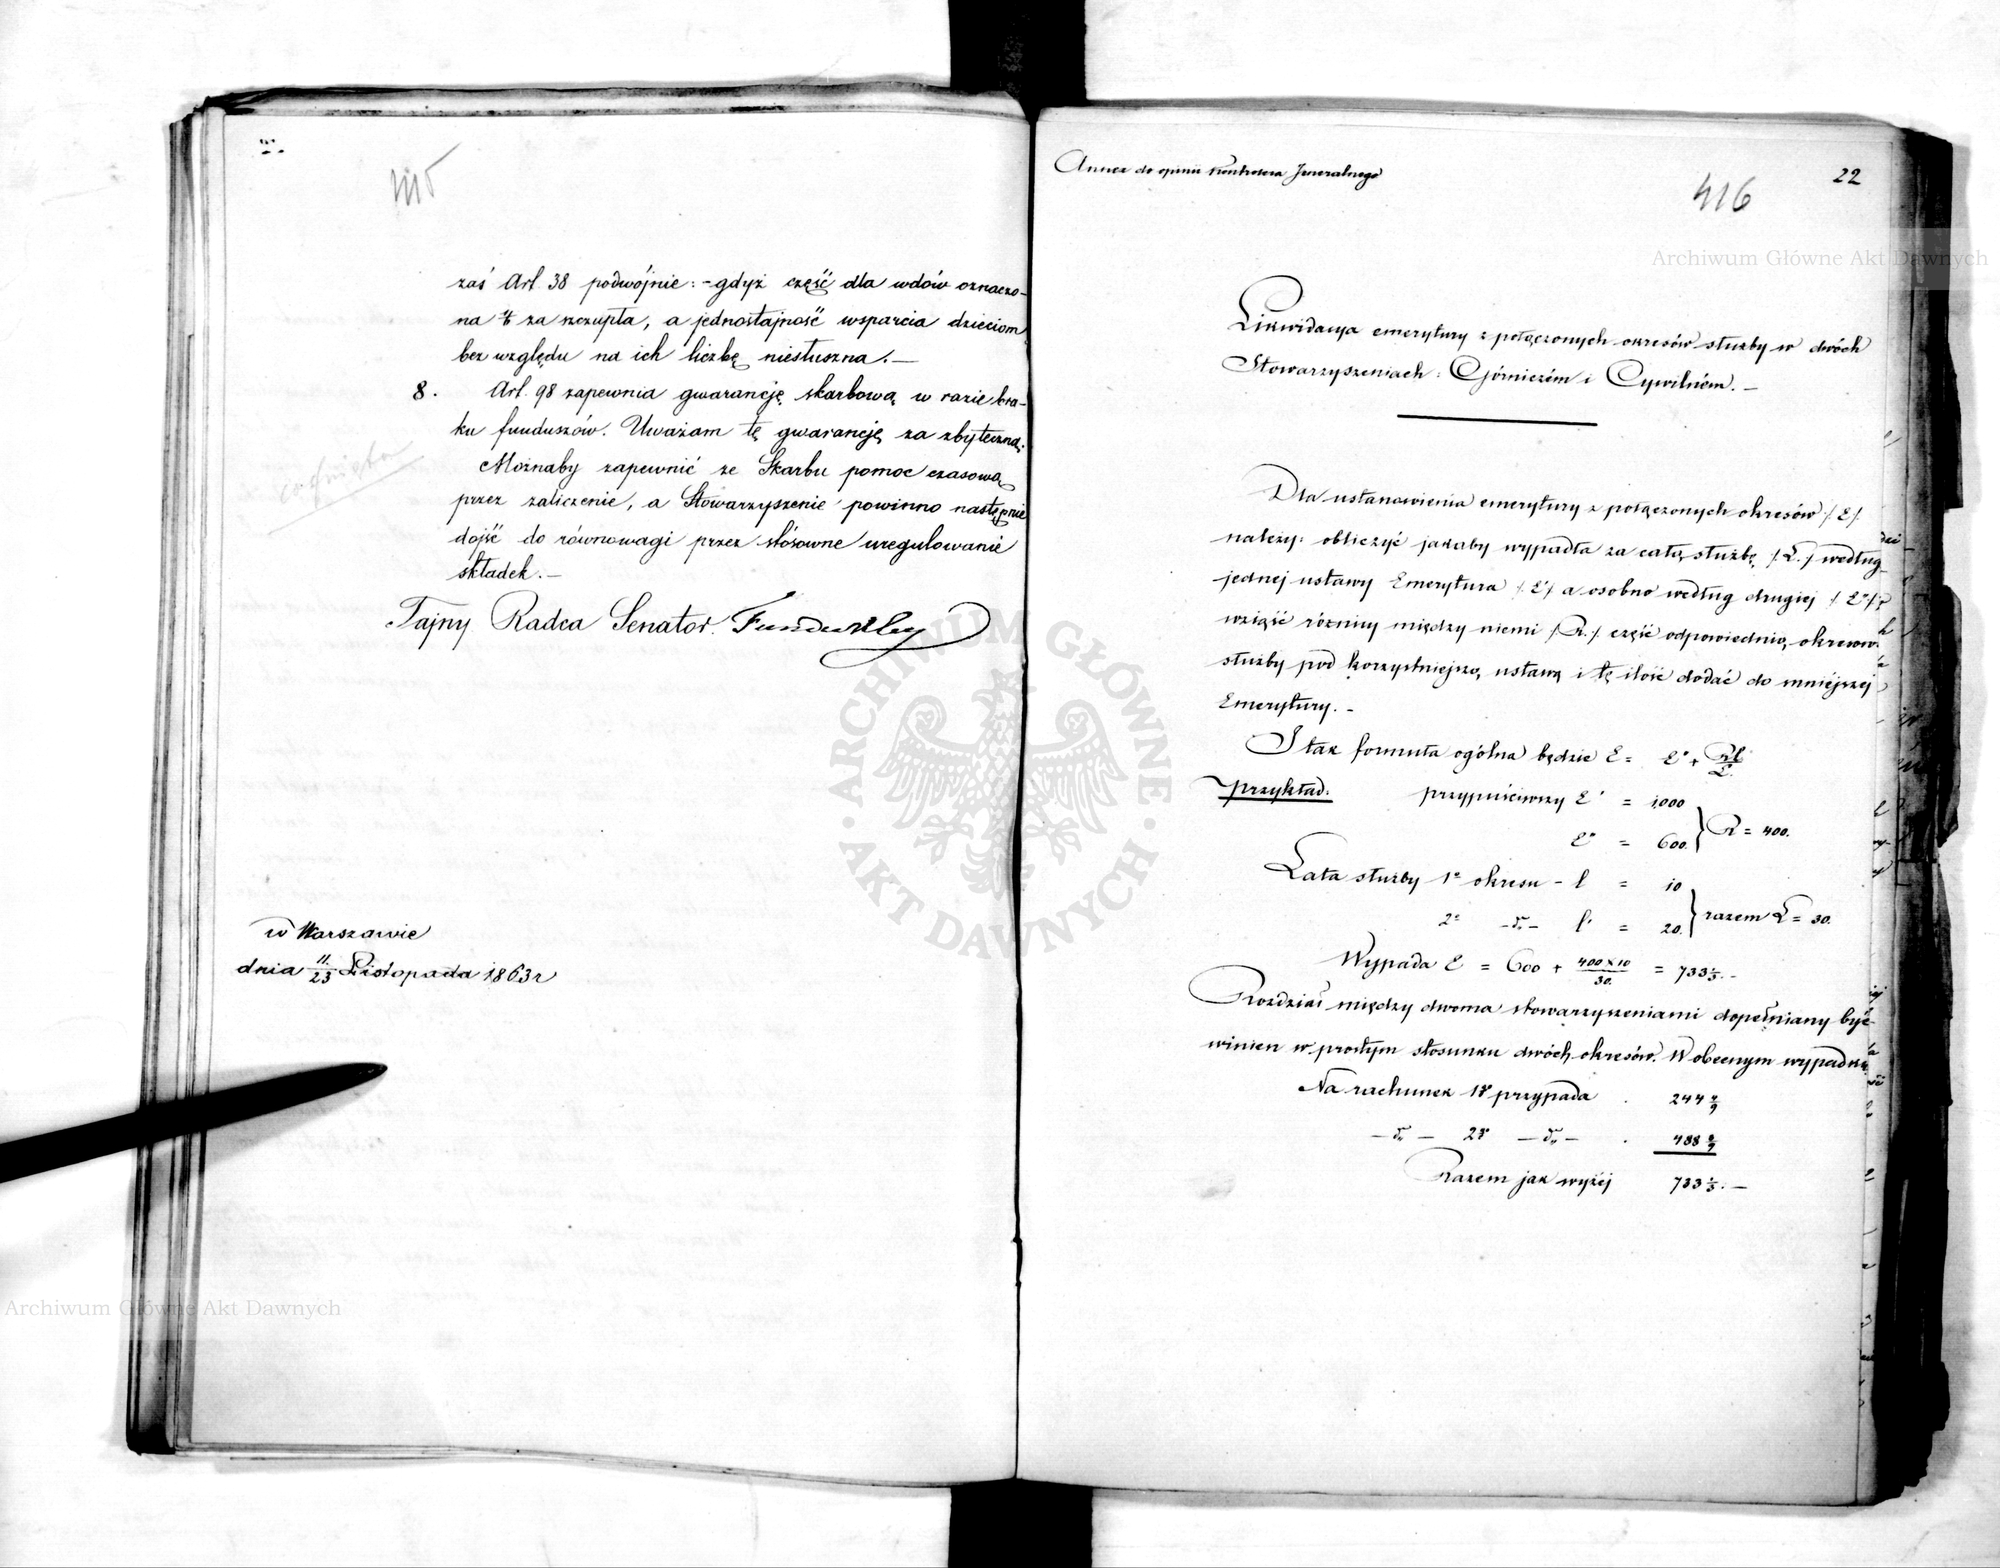 415
zaś Art. 38 podwójnie: - gdyż część dla wdów oznaczo-
na za szczupła, a jednostajność wsparcia dzieciom
bez względu na ich liczbę niesłuszna. —
8. Art. 98 zapewnia gwarancję skarbową w razie bra-
ku funduszów. Uważam tę gwarancję za zbyteczną.
Możnaby zapewnić ze Skarbu pomoc czasową
przez zaliczenie, a Stowarzyszenie powinno następnie
dojść do równowagi przez stósowne uregulowanie
składek. —
Tajny Radca Senator. Fundukley
w Warszawie
dnia 11/23 Listopada 1863 r
Annex do opinii Kontrolera Jeneralnego
22
416
Likwidacya emerytury z połączonych okresów służby w dwóch
Stowarzyszeniach: Górniczém i Cywilném. —
Dla ustanowienia emerytury z połączonych okresów /: E /:
należy: obliczyć jakaby wypadła za całą służbę /: L. / według
jednej ustawy Emerytura /: E' / a osobno według drugiej /: E" /:
wziąść różnicy między niemi /: R. /: część odpowiednią okresow
służby pod korzystniejszą ustawą i tę ilość dodać do mniejszej
Emerytury. —
I tak formuła ogólna będzie E = E" + Rl/L
Przykład: przypuściwszy E' = 1,000
E" = 600. } R = 400.
Lata służby 1º okresu - l = 10
2º - dº - l' = 20. } razem L = 30.
Wypada E = 600 + 400 x 10/30. = 733 1/3. —
Rozdział między dwoma stowarzyszeniami dopełniany być
winien w prostym stosunku dwóch okresów. W obecnym wypadku
Na rachunek 1go przypada . 244 4/9
— dº — 2go — dº — . 488 8/9
Razem jak wyżej 733 1/3. —
Archiwum Główne Akt Dawnych
Archiwum Główne Akt Dawnych
ARCHIWUM GŁÓWNE
AKT DAWNYCH